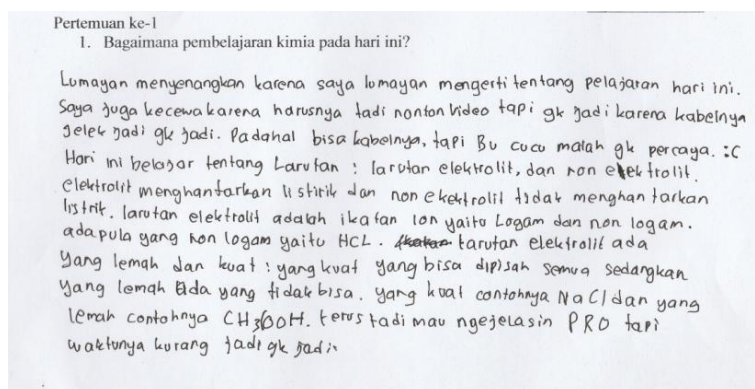 Pertemuan ke-1
1. Bagaimana pembelajaran kimia pada hari ini?
Lumayan menyenangkan karena saya lumayan mengerti tentang pelajaran hari ini.
Saya juga kecewa karena harusnya tadi nonton video tapi gk jadi karena kabelnya
jelek jadi gk jadi. Padahal bisa kabelnya, tapi Bu cucu malah gk percaya. :C
Hari ini belajar tentang Larutan : larutan elektrolit, dan non elektrolit.
elektrolit menghantarkan listirik dan non ekektrolit tidak menghantarkan
listrik. larutan elektrolit adalah ikatan ion yaitu Logam dan non logam.
ada pula yang non logam yaitu HCL. larutan elektrolit ada
yang lemah dan kuat : yang kuat yang bisa dipisah semua sedangkan
yang lemah ada yang tidak bisa. yang kuat contohnya NaCl dan yang
lemah contohnya CH3OOH. terus tadi mau ngejelasin PRO tapi
waktunya kurang jadi gk jadi.